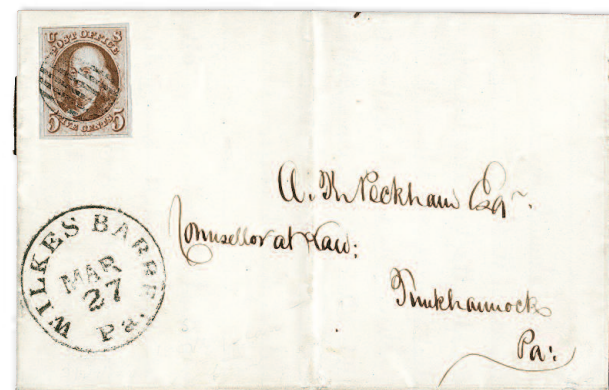 U S
POST OFFICE
5 FIVE CENTS 5
WILKES BARRE
MAR
27
Pa.
A. K. Peckham Esqr.
Counsellor at Law;
Tunkhannock
Pa: